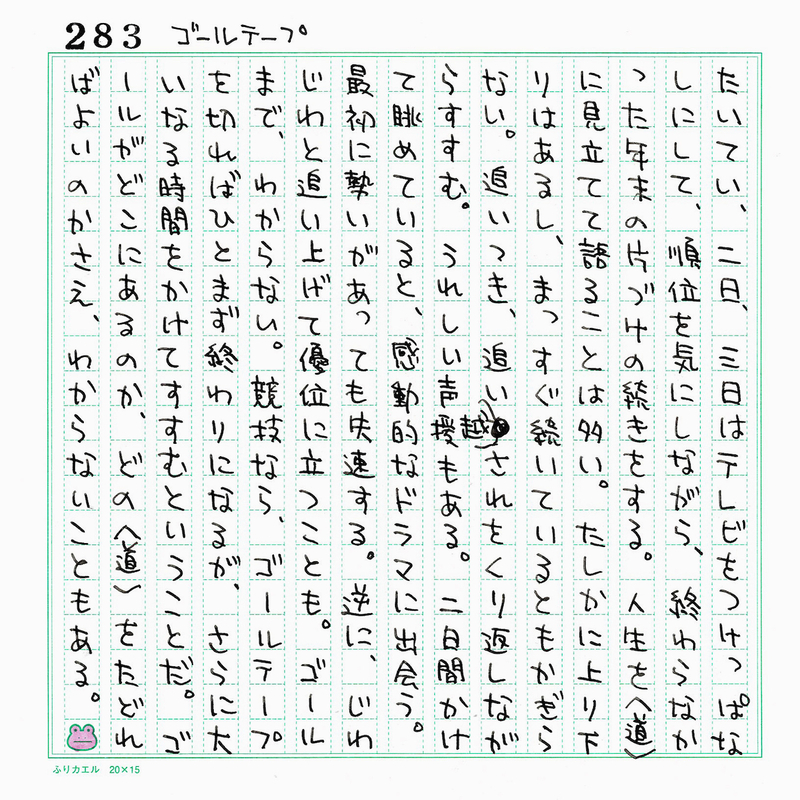 283 ゴールテープ
たいてい、二日、三日はテレビをつけっぱな
しにして、順位を気にしながら、終わらなか
った年末の片づけの続きをする。人生を〈道〉
に見立てて語ることは多い。たしかに上り下
りはあるし、まっすぐ続いているともかぎら
ない。追いつき、追い越されをくり返しなが
らすすむ。うれしい声援もある。二日間かけ
て眺めていると、感動的なドラマに出会う。
最初に勢いがあっても失速する。逆に、じわ
じわと追い上げて優位に立つことも。ゴール
まで、わからない。競技なら、ゴールテープ
を切ればひとまず終わりになるが、さらに大
いなる時間をかけてすすむということだ。ゴ
ールがどこにあるのか、どの〈道〉をたどれ
ばよいのかさえ、わからないこともある。
ふりカエル 20×15